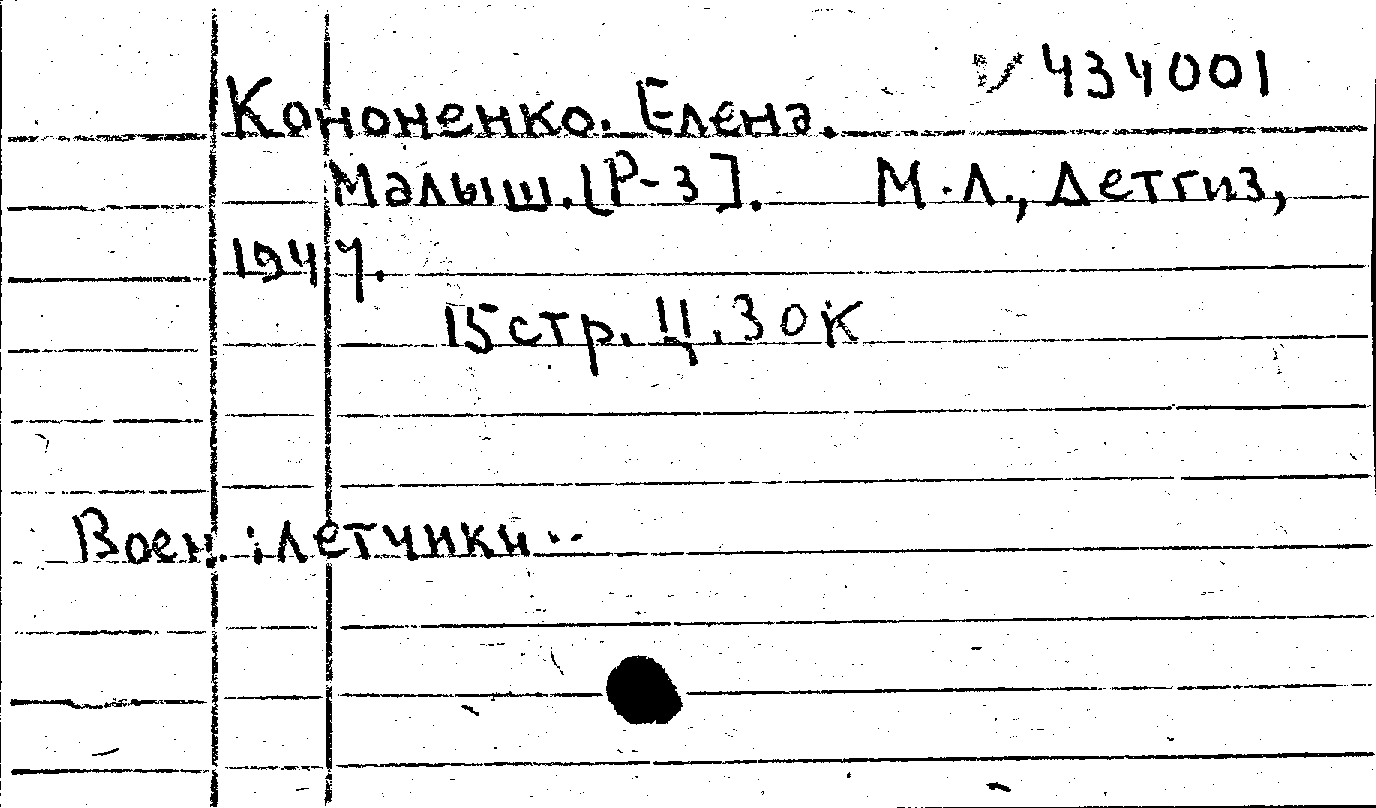 V 434001
Кононенко. Елена.
Малыш. [Р-з]. М.-Л., Детгиз,
1944.
15 стр. Ц. 30 к
Воен. летчики..